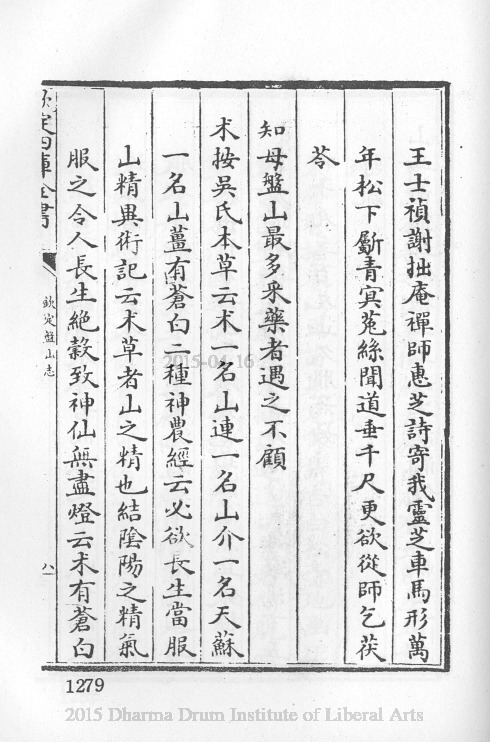 王士禎謝拙庵禪師惠芝詩寄我靈芝車馬形萬
年松下斸青冥菟絲聞道垂千尺更欲從師乞茯
苓
知母盤山最多采藥者遇之不顧
术按吳氏本草云术一名山連一名山介一名天蘇
一名山薑有蒼白二種神農經云必欲長生當服
山精異術記云术草者山之精也結陰陽之精氣
服之令人長生絶穀致神仙無盡燈云术有蒼白
欽定四庫全書
欽定盤山志
1279
2015-04-16
2015 Dharma Drum Institute of Liberal Arts